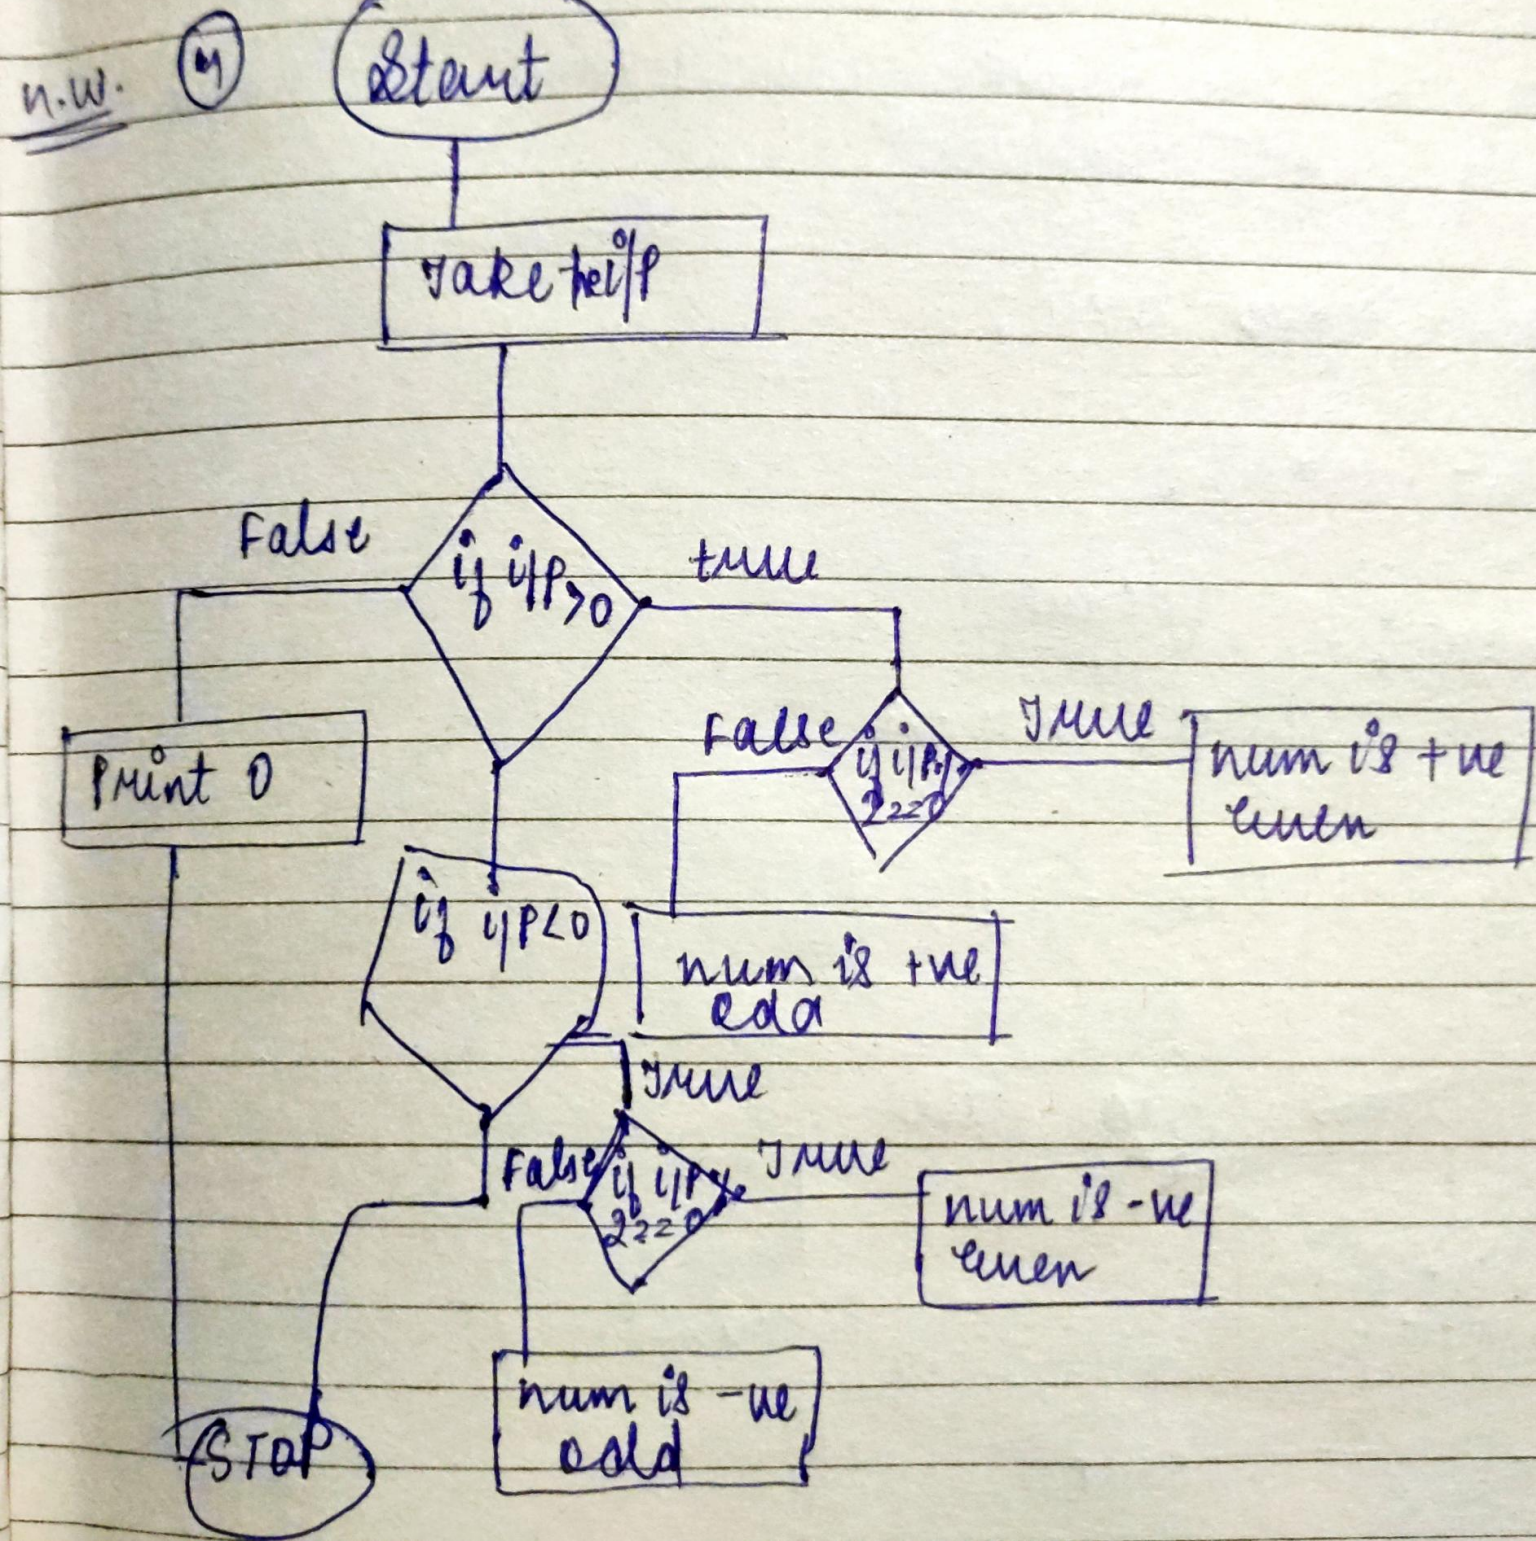 H.W.
Start
Take the i/p
False
if i/p >0
true
Print 0
False
if i/p %
2==0
True
num is +ve
even
if i/p<0
num is +ve
odd
True
False
if i/p %
2==0
True
num is -ve
even
num is -ve
odd
STOP